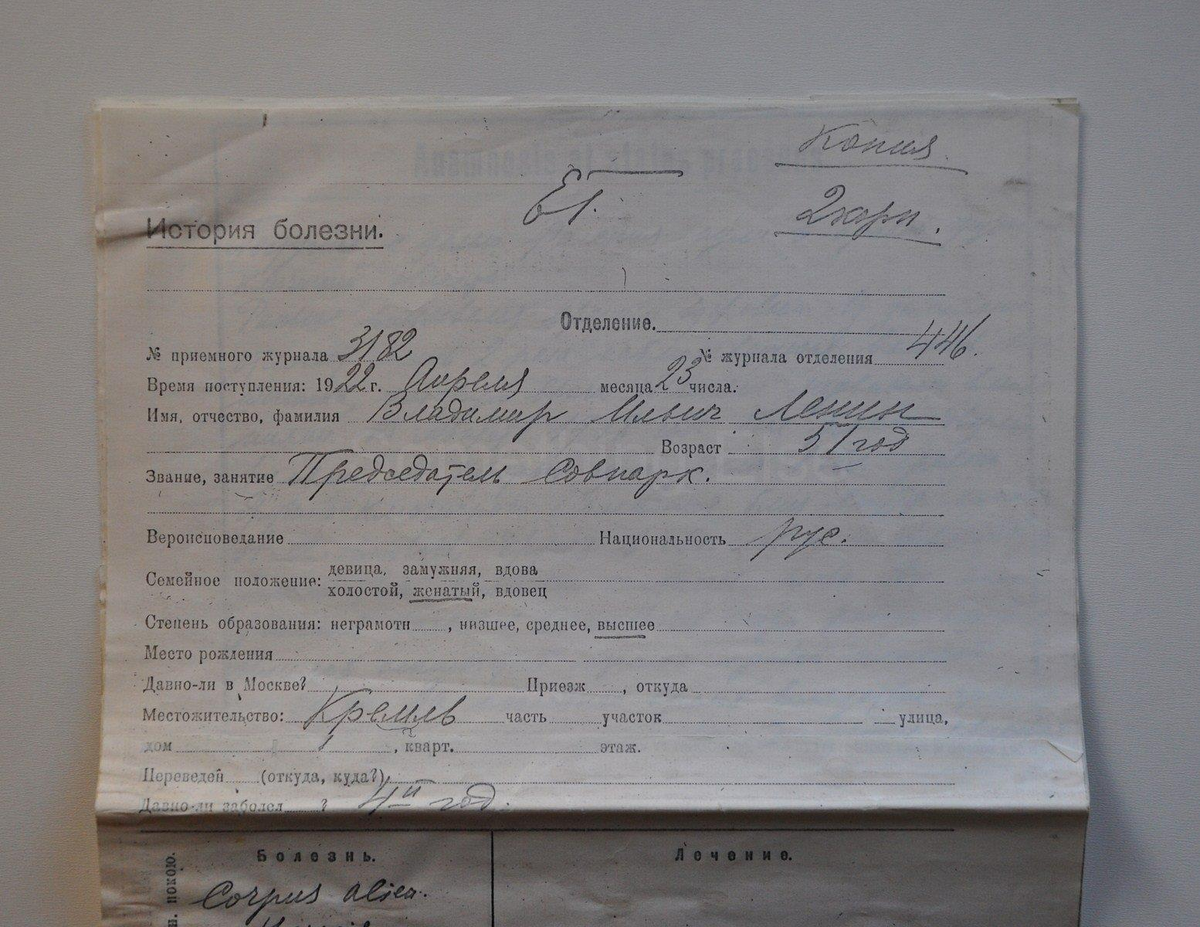 Копия.
2 экз.
История болезни.
Отделение.
№ приемного журнала 3182 № журнала отделения 446.
Время поступления: 1922 г. Апреля месяца 23 числа.
Имя, отчество, фамилия Владимир Ильич Ленин
Возраст 51 год
Звание, занятие Председатель Совнарк.
Вероисповедание Национальность рус.
Семейное положение: девица, замужняя, вдова
холостой, женатый, вдовец
Степень образования: неграмотн , низшее, среднее, высшее
Место рождения
Давно-ли в Москве? Приезж , откуда
Местожительство: Кремль часть участок улица,
дом , кварт. этаж.
Переведен (откуда, куда?)
Давно-ли заболел ? 4й год.
Болезнь. Лечение.
Corpus alien.
покою.